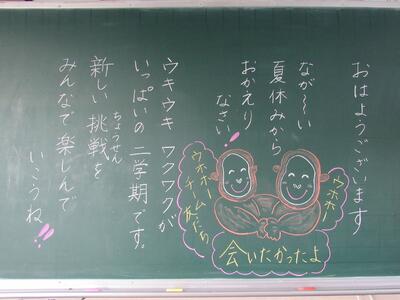 おはようございます
なが〜い
夏休みから
おかえり
なさい!
ウキウキ ワクワクが
いっぱいの 二学期です。
新しい 挑戦を
ちょうせん
みんなで楽しんで
いこうね!!
ウホホー
会いたかったよ
友だち